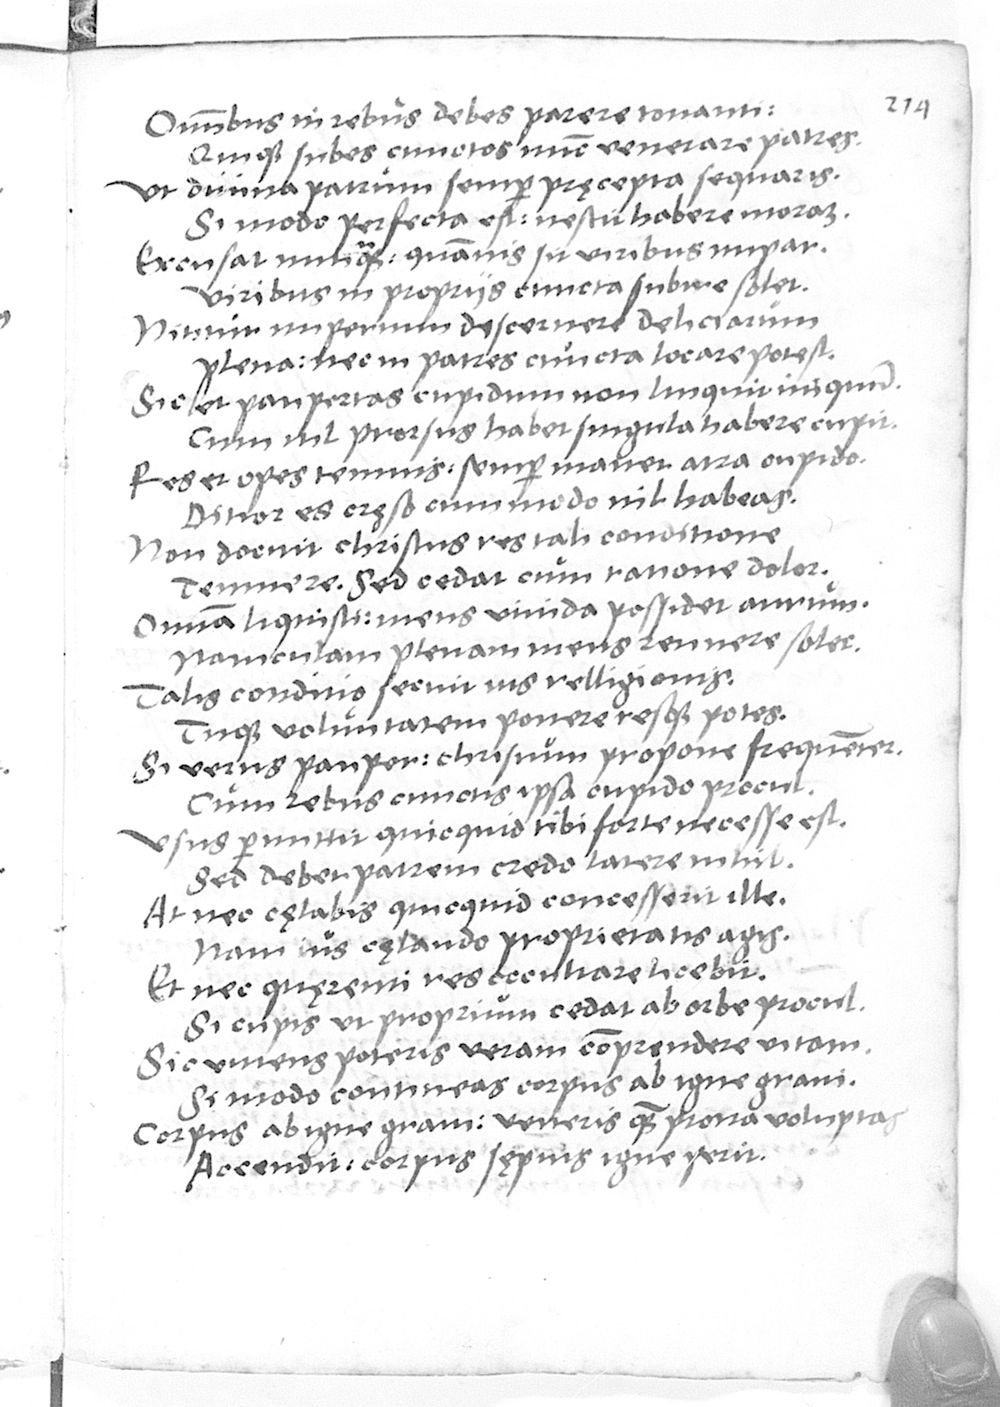 214
Omnibus in rebus debes parere tonanti:
Quiq₃ subes cunctos nūc venerare patres.
Vt diuina patrum semp̱ pręcepta sequaris.
Si modo perfecta est: nescit habere moraꝫ.
Excusat nunq̃: quāuis sit viribus impar.
Viribus in propriis cuncta subire solet.
imperium descernere deliciarum
plena: nec in patres cuncta locare potest.
Sic et paupertas cupidum non linquit iniquū.
Cum nil prorsus habet singula habere cupit.
Res et opes temnis: semp̱ manet atra cupido.
Ditior es cręso cum modo nil habeas.
Non docuit christus res tali conditione
Temnere. Sed cedat cum ratione dolor.
Omnīa liquisti: mens viuida possidet aurum.
Nauiculam plenam mens renuere solet.
Talis conditio secuit ius relligionis.
Tuq₃ voluntatem ponere resq₃ potes.
Si verus pauper: christum propone frequēter.
Cum rebus cunctis ipsa cupido procul.
Vsus p̱mittit quicquid tibi forte necesse est.
Sed debet patrem credo latere nihil.
At nec cęlabis quicquid concesserit ille.
Nam ius cęlando proprietatis agis.
Et nec quęrenti res occultare licebit.
Si cupis vt proprium cedat ab orbe procul.
Sic viuens poteris veram cōprendere vitam.
Si modo contineas corpus ab igne graui.
Corpus ab igne graui: veneris q̃ prona voluptas
Accendit: corpus sępius igne perit.